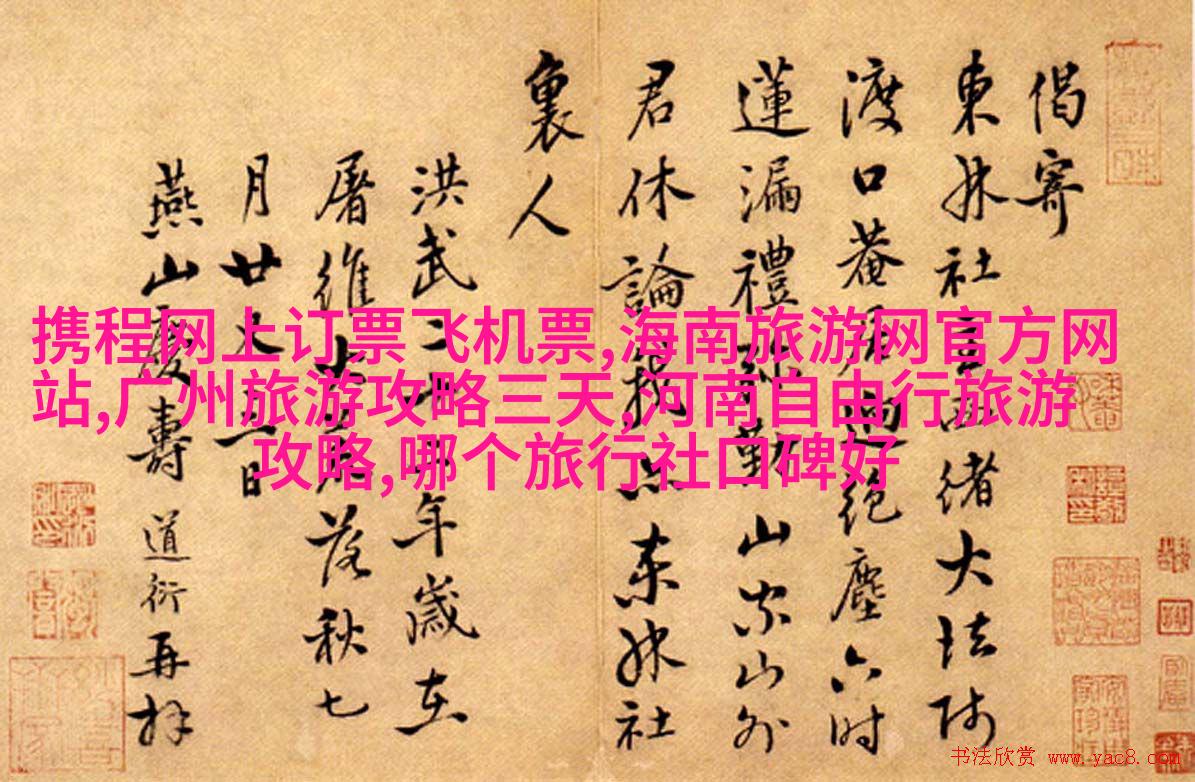 偈寄
東林社主西緒大法師
渡口菴居迥絕塵六時
蓮漏禮弥勤山家山外
君休論是東林社
裏人
洪武二十年歲在
屠維荒落秋七
月廿日
燕山慶壽道衍再拜
携程网上订票飞机票,海南旅游网官方网
站,广州旅游攻略三天,河南自由行旅游
攻略,哪个旅行社口碑好
书法欣赏 www.yac8.com